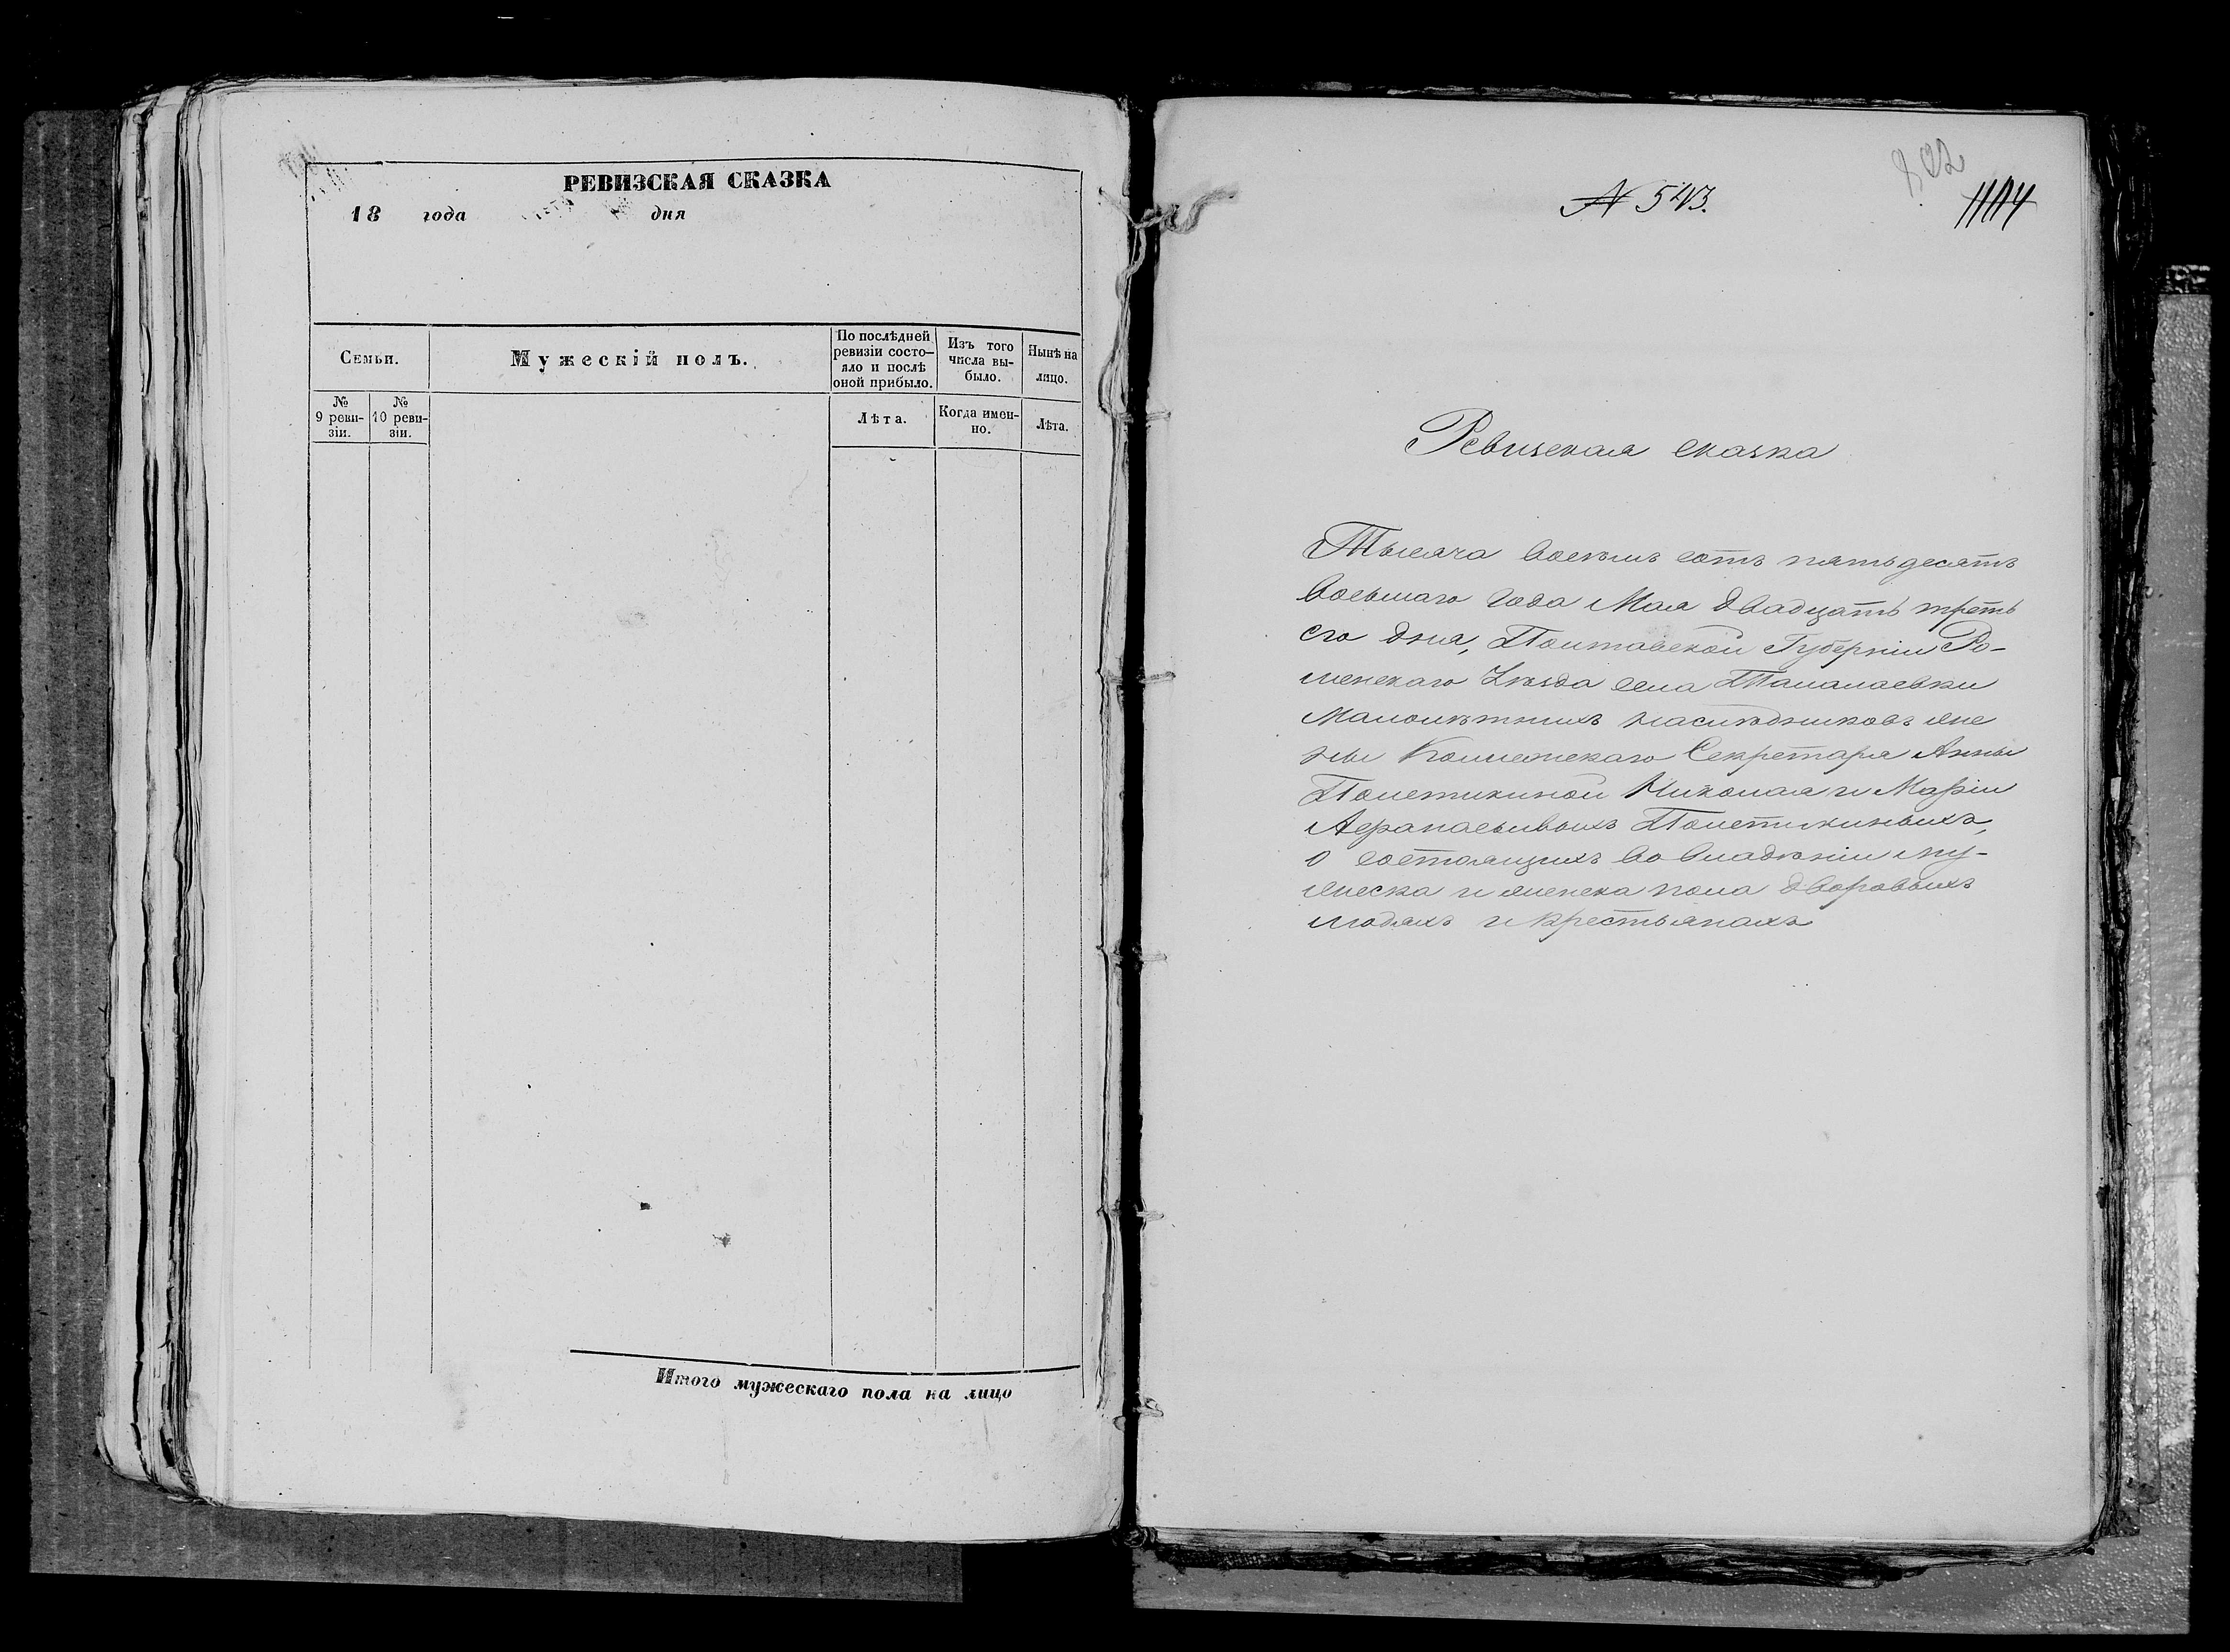 РЕВИЗСКАЯ СКАЗКА
18 года дня
Семьи.
Мужескій полъ.
По послѣдней ревизіи состо—яло и послѣ оной прибыло.
Изъ того числа вы-было.
Нынѣ на лицо.
№ 9 реви-зіи.
№ 10 реви-зіи.
Лѣта.
Когда имен-но.
Лѣта.
Итого мужескаго пола на лицо
№ 543.
Ревизская сказка
Тысяча восемь сотъ пятьдесятъ
восьмаго года Мая двадцать треть
его дня, Полтавской Губерніи Ро-
менскаго Уѣзда села Талалаевки
Малолѣтнихъ наслѣдниковъ же
ны Коллежскаго Секретаря Анны
Полетикиной Николая и Маріи
Афанасьевыхъ Полетикиныхъ,
о состоящихъ во владѣніи му-
жеска и женска пола дворовыхъ
людяхъ и крестьянахъ